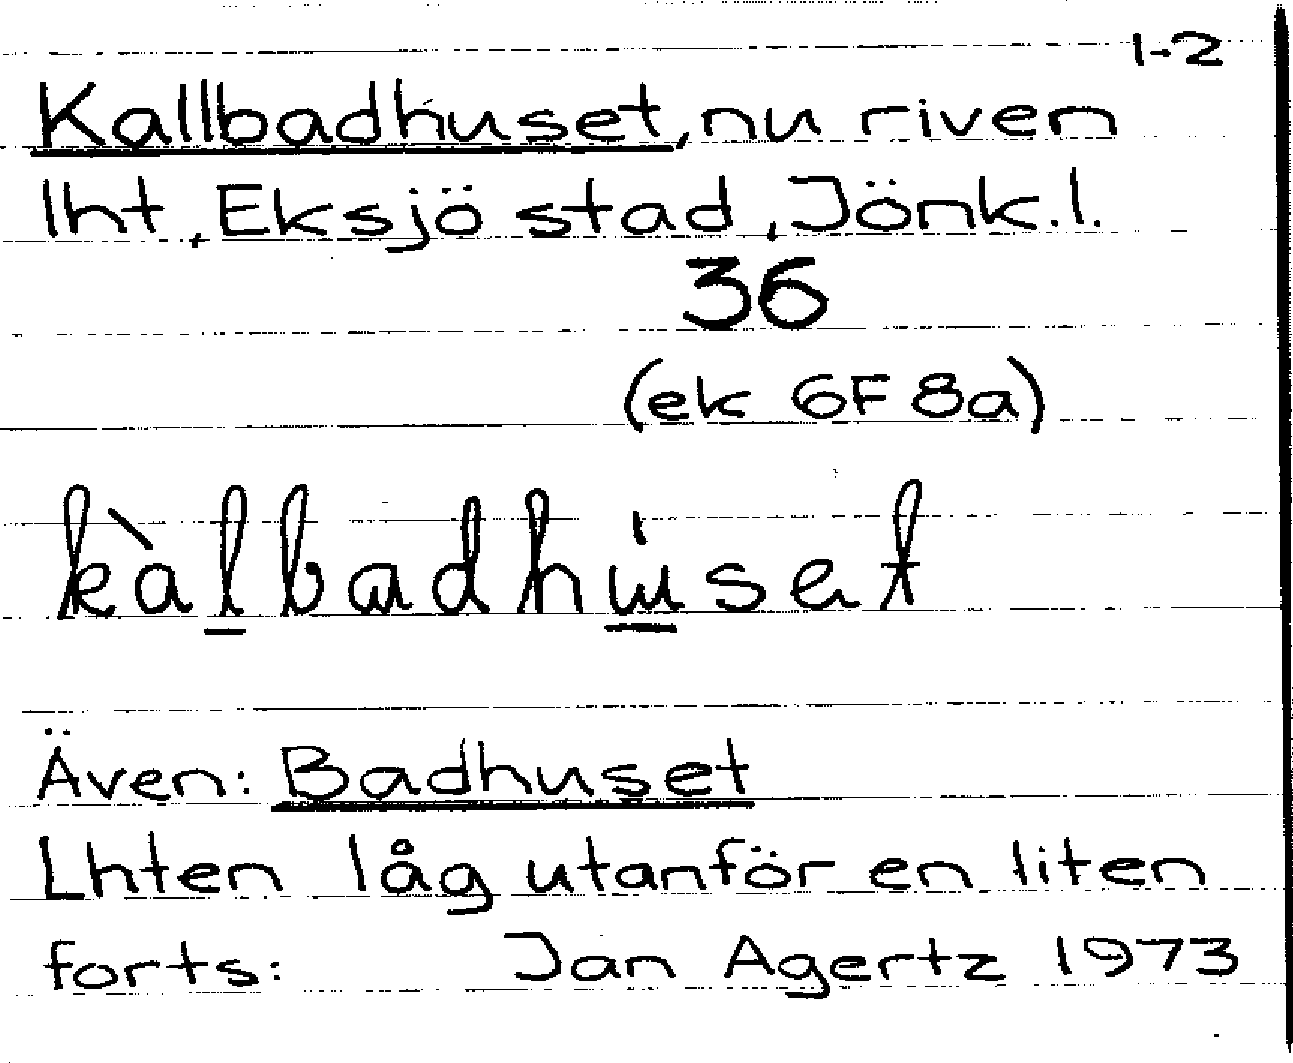 1-2
Kallbadhuset, nu riven
lht, Eksjö stad, Jönk.l.
36
(ek 6F 8a)
kàlbadhu̍set
Även: Badhuset
Lhten låg utanför en liten
forts: Jan Agertz 1973